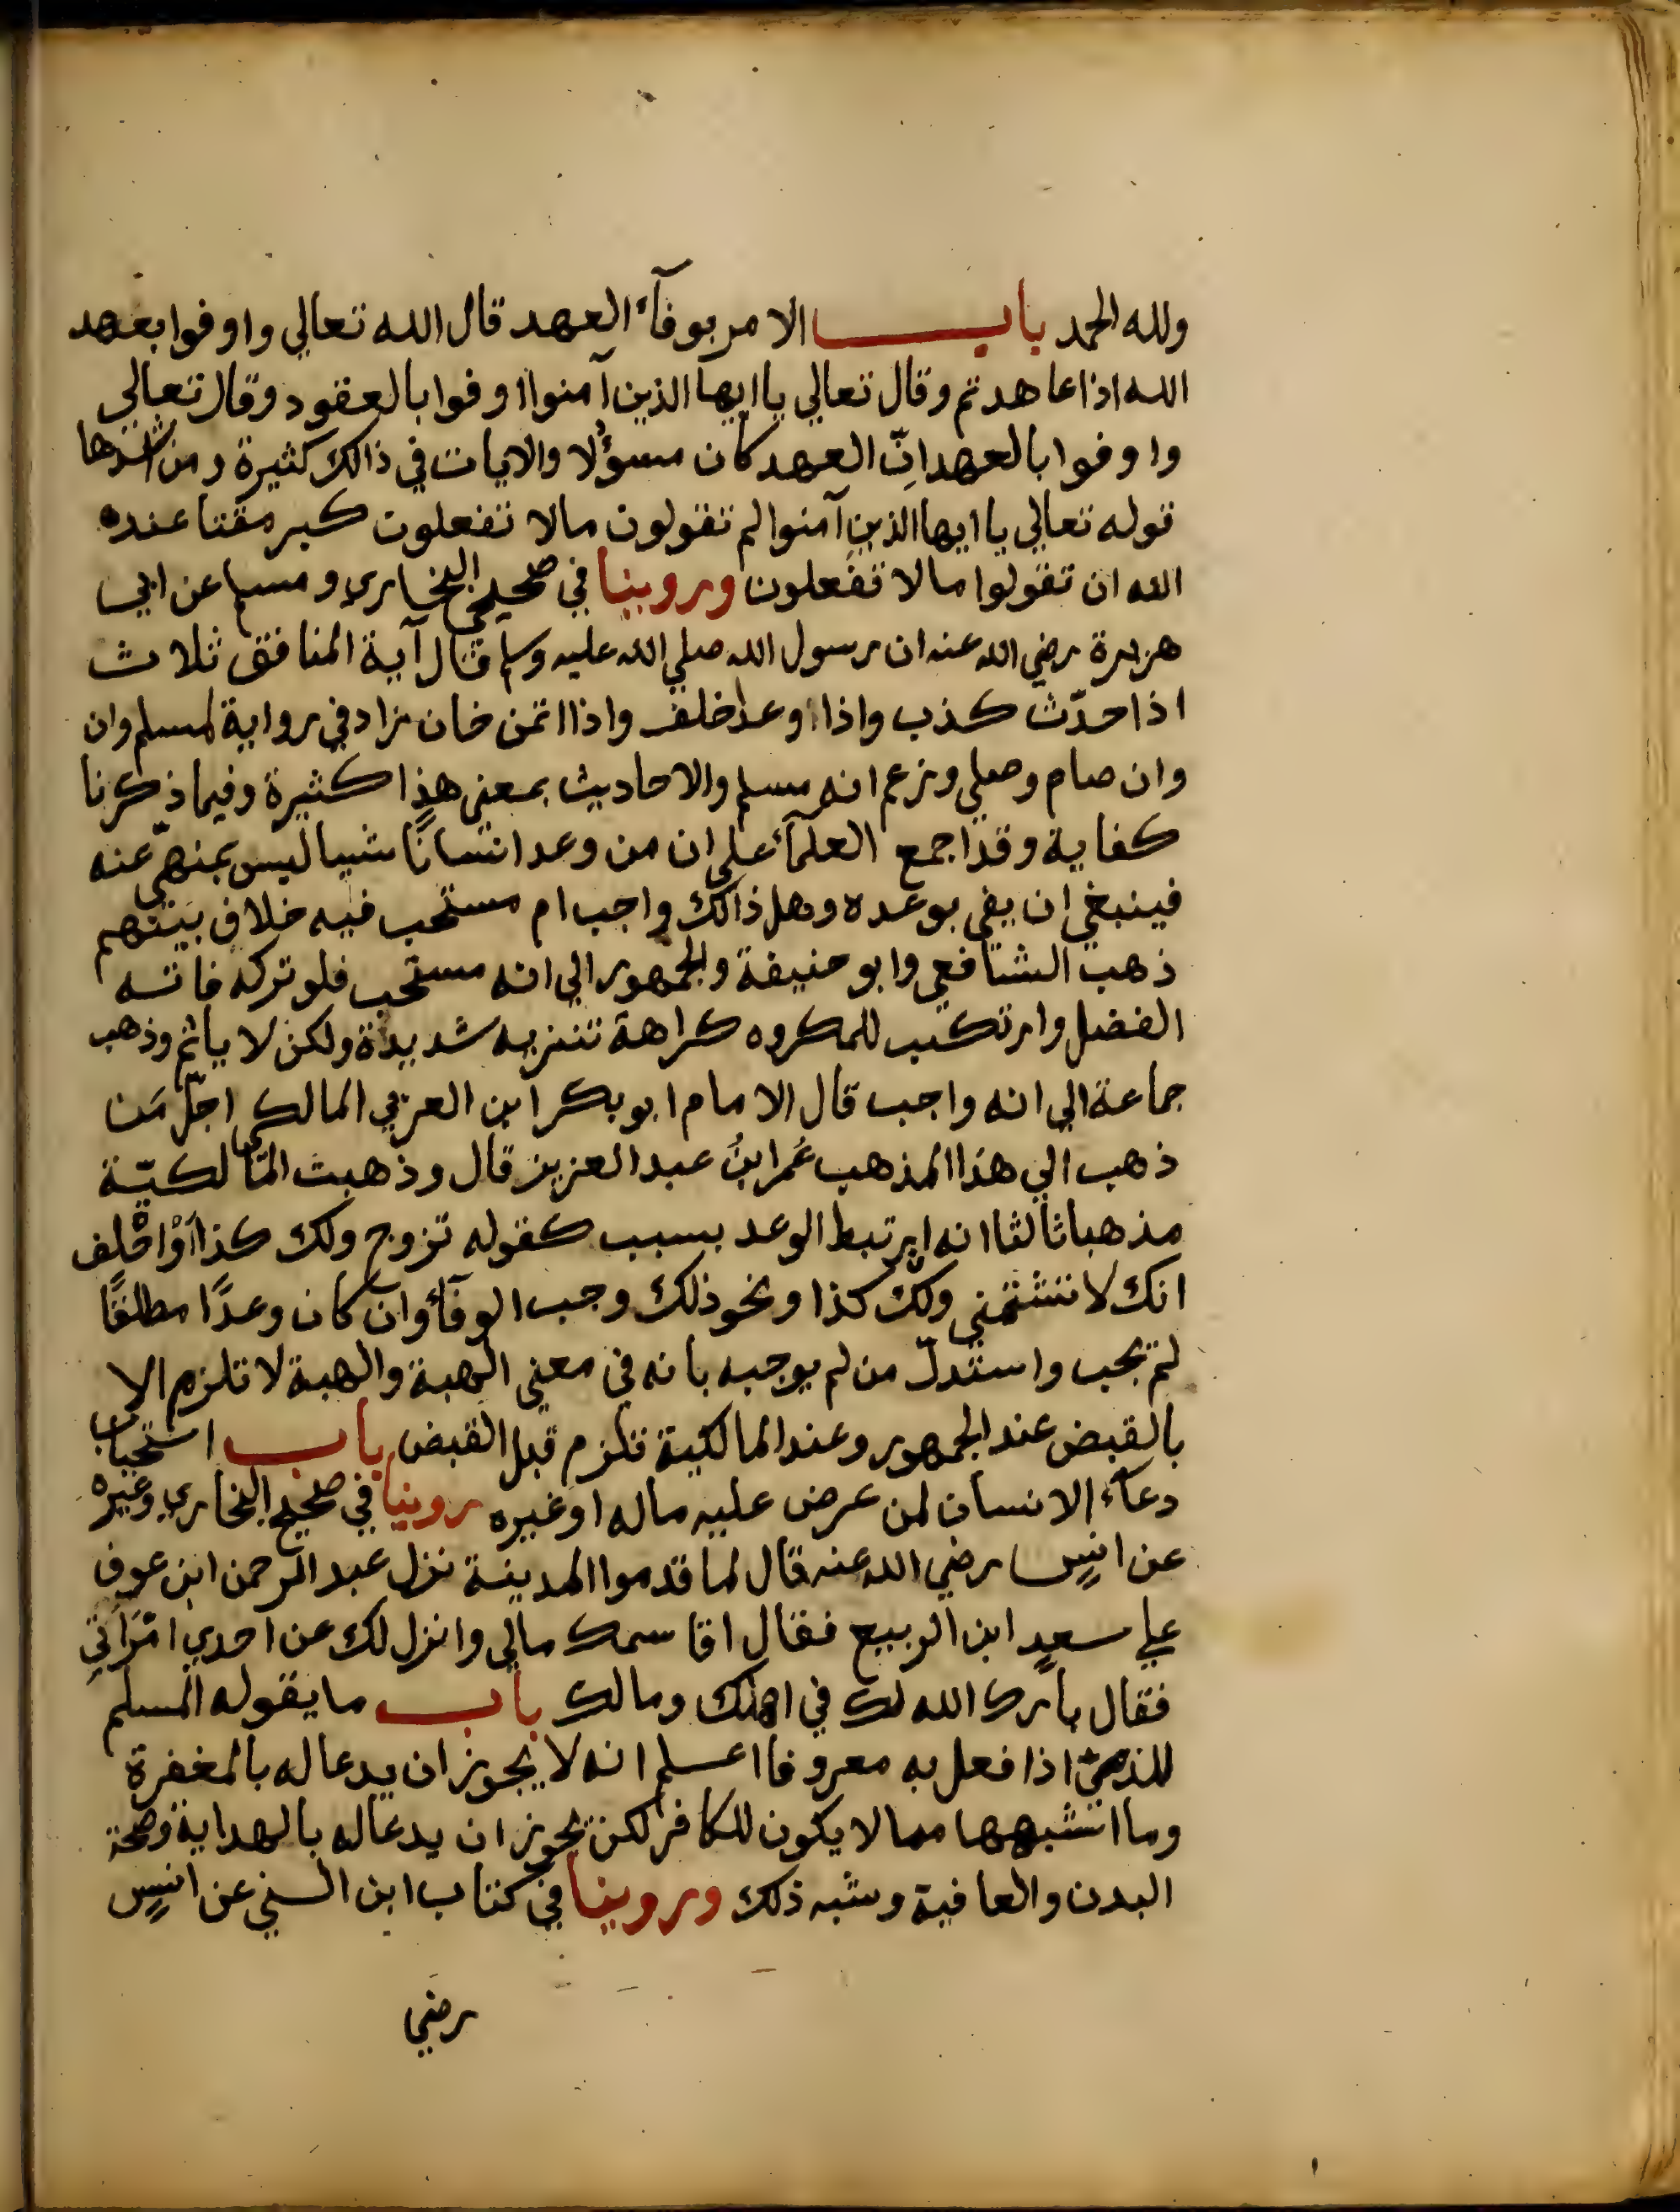 ولله الحمد باب الامر بوفآء العهد قال الله تعالي واوفوا بعهد
الله اذا عاهدتم وقال تعالي يا ايها الذين آمنوا اوفوا بالعقود وقال تعالي
واوفوا بالعهد انّ العهد كان مسؤلا والايات في ذالك كثيرة ومن اشدها
قوله تعالي يا ايها الذين آمنوا لم تقولون مالا تفعلون كبر مقتا عنده
الله ان تقولوا مالا تفعلون وروينا في صحيحي البخاري ومسلم عن ابي
هريرة رضي الله عنه ان رسول الله صلي الله عليه وسلم قال آية المنافق ثلاث
اذا حدّث كذب واذا وعد اخلف واذا اتمن خان زاد في رواية لمسلم وان
وان صام وصلي وزعم انه مسلم والاحاديث بمعني هذا كثيرة وفيما ذكرنا
كفاية وقد اجمع العلمآء علي ان من وعد انسانًا شيا ليس بمنهيّ عنه
فينبغي ان يفي بوعده وهل ذالك واجب ام مستحب فيه خلاف بينهم
ذهب الشافعي وابو حنيفة والجمهور الي انه مستحب فلو تركه فاته
الفضل وارتكب للمكروه كراهة تنزيه شديدة ولكن لا ياثم وذهب
جماعة الي انه واجب قال الامام ابو بكر ابن العربي المالكي اجلّ مَن
ذهب الي هذا المذهب عُمر ابنُ عبد العزيز قال وذهبت المالكيّة
مذهبا ثالثا انه ان ارتبط الوعد بسبب كقوله تزوج ولك كذا أوْ احْلف
انك لا تشتمني ولك كذا ونحو ذلك وجب الوفآء وان كان وعدًا مطلقًا
لمْ يجب واستدلّ من لم يوجبه بانه في معني الهبة والهبة لا تلزم الا
بالقبض عند الجمهور وعند المالكية تلزم قبل القبض باب استحباب
دعآء الانسان لمن عرض عليه ماله او غيره روينا في صحيح البخاري وغيره
عن انسٍ رضي الله عنه قال لما قدموا المدينة نزل عبد الرحمن ابن عوف
علي سعدٍ ابن الربيع فقال اقاسمك مالي وانزل لك عن احدي امْرَاَتيِ
فقال بارك الله لك في اهلك ومالك باب ما يقوله المسلم
للذميّ اذا فعل به معروفا اعلم انه لا يجوز ان يدعا له بالمغفرة
وما اشبهها مما لا يكون للكافر لكن يجوز ان يدعا له بالهداية وصحة
البدن والعافية وشبه ذلك وروينا في كتاب ابن السني عن انسٍ
رضي